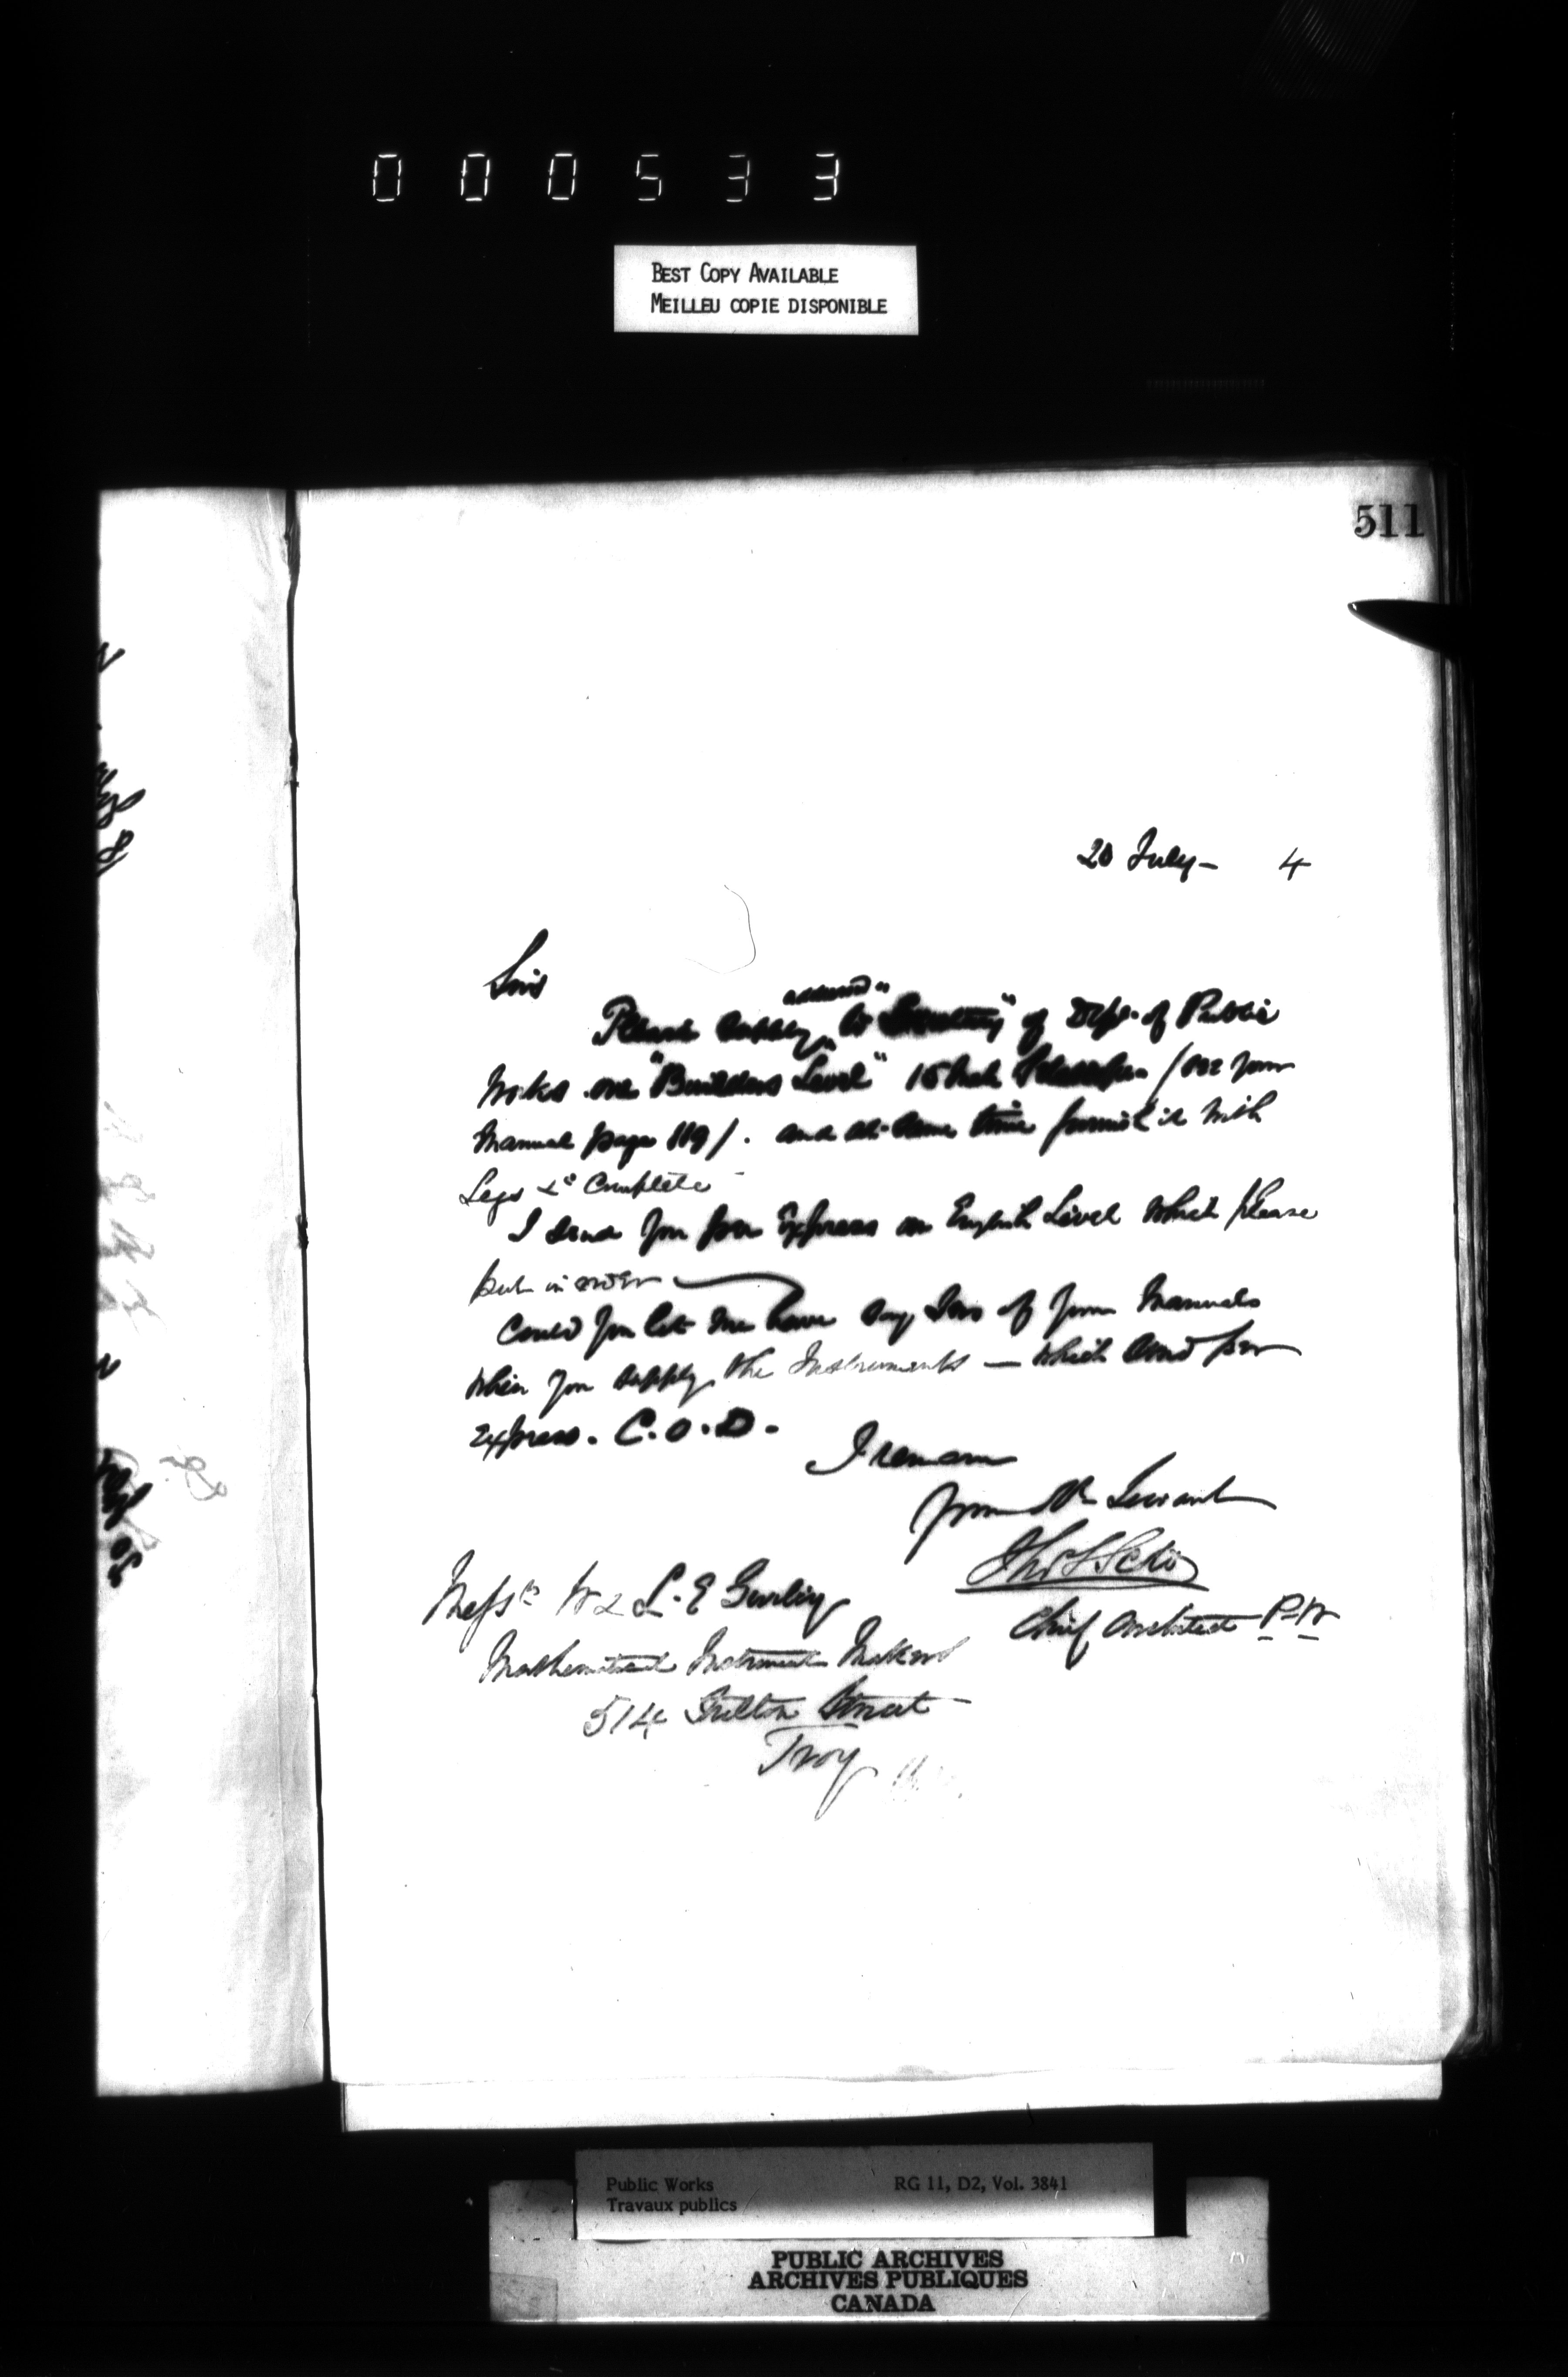 000533
BEST COPY AVAILABLE
MEILLEU COPIE DISPONIBLE
511
20 July - 4
Sirs
addressed "
Please supply to Secretary" of Dept. of Public
Works one "Builders Level" 15 Inch Telescope /see your
Manual page 119/. and at same time furnish it with
Legs &c Complete
I send you per Express an English Level which please
put in order
Could you let me have say two of your Manuals
when you supply the Instruments — which send per
express. C.O.D.
I remain
your Ob Servant
Thos S. Scott
Chief Architect P.W
Messrs W & L. E Gurley
Mathematical Instrument Makers
514 Fulton Street
Troy
Public Works
Travaux publics
RG 11, D2, Vol. 3841
PUBLIC ARCHIVES
ARCHIVES PUBLIQUES
CANADA